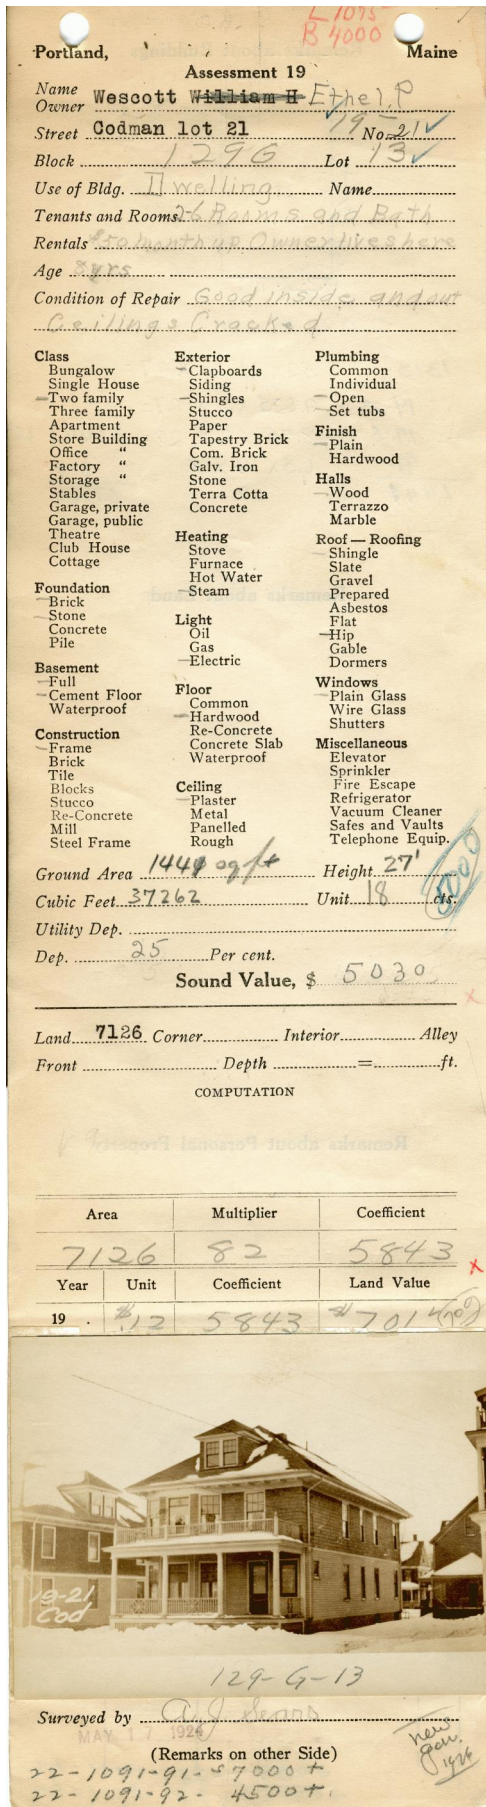 L 1075
B 4000
Portland, Maine
Assessment 19
Name Owner Wescott William H Ethel P
Street Codman lot 21 19- No. 21
Block 129G Lot 13
Use of Bldg. Dwelling Name
Tenants and Rooms. 2-6 Rooms and Bath
Rentals $50 month up Owner lives here
Age 8 yrs
Condition of Repair Good inside and out
Ceilings Cracked
Class
Bungalow
Single House
Two family
Three family
Apartment
Store Building
Office "
Factory "
Storage "
Stables
Garage, private
Garage, public
Theatre
Club House
Cottage
Foundation
Brick
Stone
Concrete
Pile
Basement
Full
Cement Floor
Waterproof
Construction
Frame
Brick
Tile
Blocks
Stucco
Re-Concrete
Mill
Steel Frame
Exterior
Clapboards
Siding
Shingles
Stucco
Paper
Tapestry Brick
Com. Brick
Galv. Iron
Stone
Terra Cotta
Concrete
Heating
Stove
Furnace
Hot Water
Steam
Light
Oil
Gas
Electric
Floor
Common
Hardwood
Re-Concrete
Concrete Slab
Waterproof
Ceiling
Plaster
Metal
Panelled
Rough
Plumbing
Common
Individual
Open
Set tubs
Finish
Plain
Hardwood
Halls
Wood
Terrazzo
Marble
Roof — Roofing
Shingle
Slate
Gravel
Prepared
Asbestos
Flat
Hip
Gable
Dormers
Windows
Plain Glass
Wire Glass
Shutters
Miscellaneous
Elevator
Sprinkler
Fire Escape
Refrigerator
Vacuum Cleaner
Safes and Vaults
Telephone Equip.
Ground Area sq ft Height 27'
Cubic Feet 37262 Unit 18 cts.
5000
Utility Dep.
Dep. 25 Per cent.
Sound Value, $ 5030
Land 7126 Corner Interior Alley
Front Depth = ft.
COMPUTATION
Area Multiplier Coefficient
7126 82 5843
Year Unit Coefficient Land Value
19 . $.12 5843 $701
19-21
Cod
129-G-13
Surveyed by A J Sears
MAY 17 1924
(Remarks on other Side)
new
1926
22-1091-91-$7000+
22-1091-92- 4500+